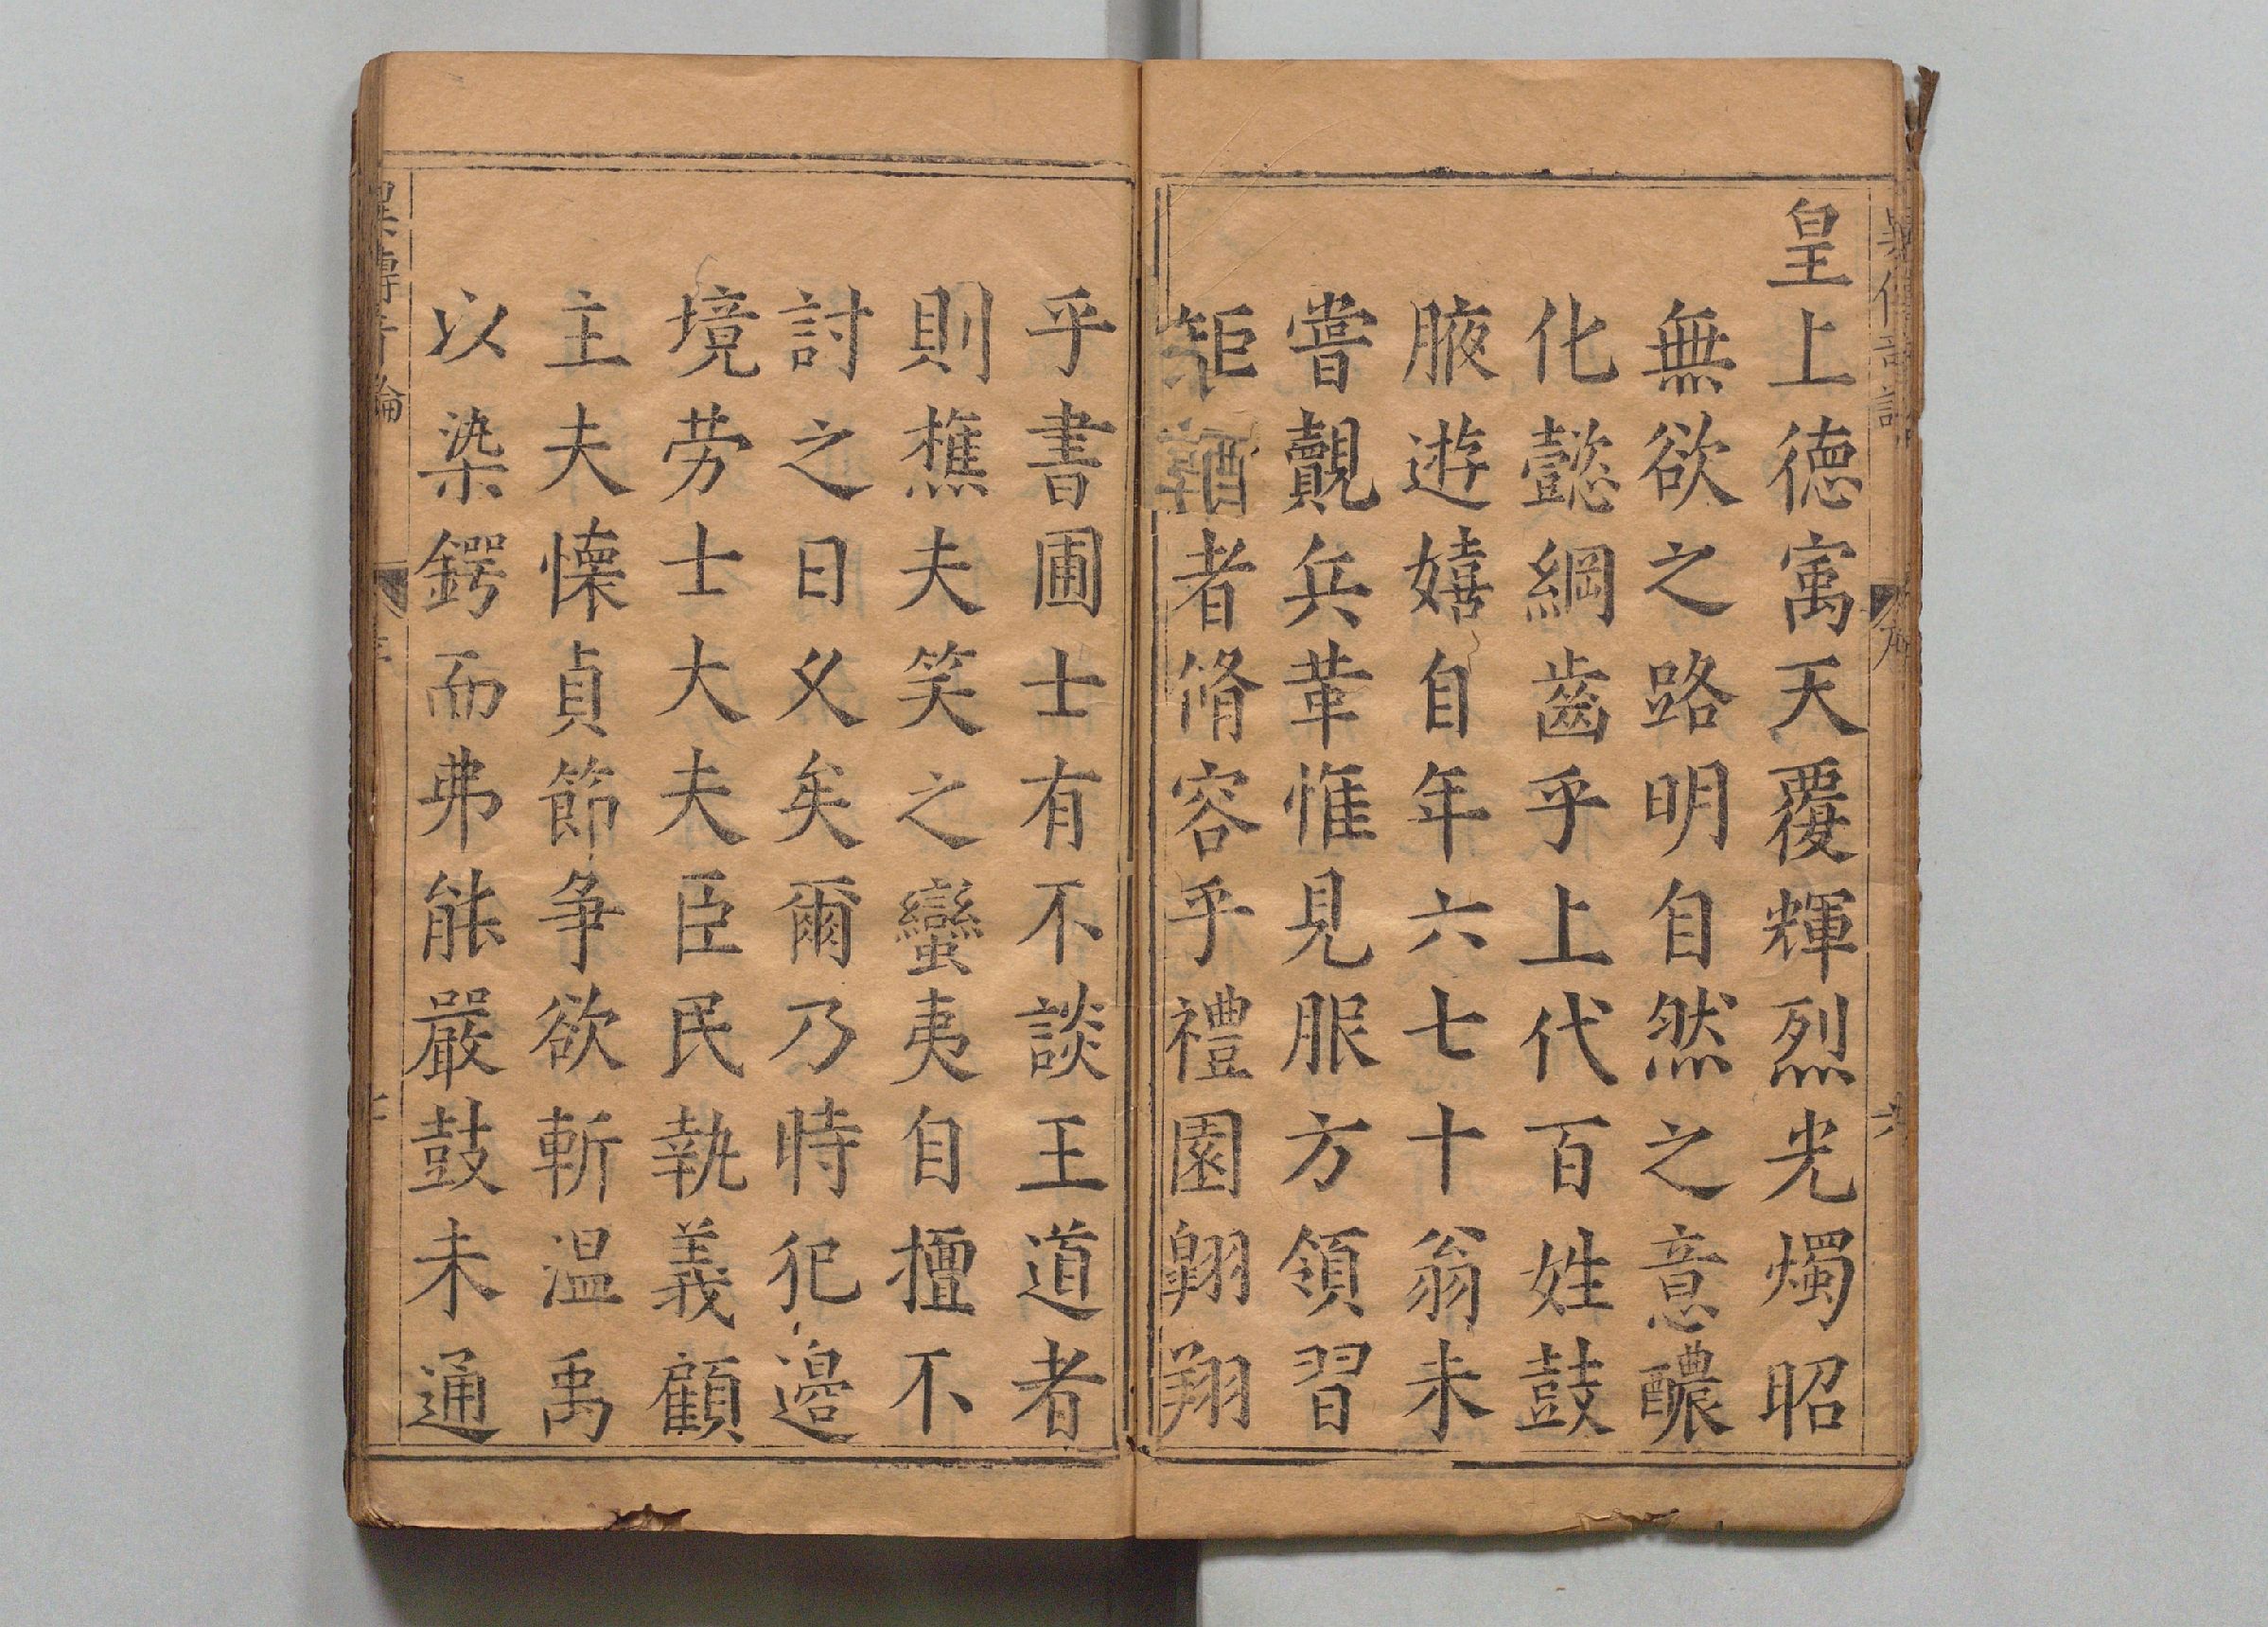 皇上德寓天覆輝烈光燭昭
無欲之路明自然之意醲
化懿綱齒乎上代百姓鼓
腋遊嬉自年六七十翁未
嘗覿兵革惟見服方領習
矩者脩容乎禮園翱翔
乎書圃士有不談王道者
則樵夫笑之蠻夷自擅不
討之日父矣爾乃時犯邊
境劳士大夫臣民執義顧
主夫懍貞節争欲斬温禹
以染鍔而弗能嚴鼓未通